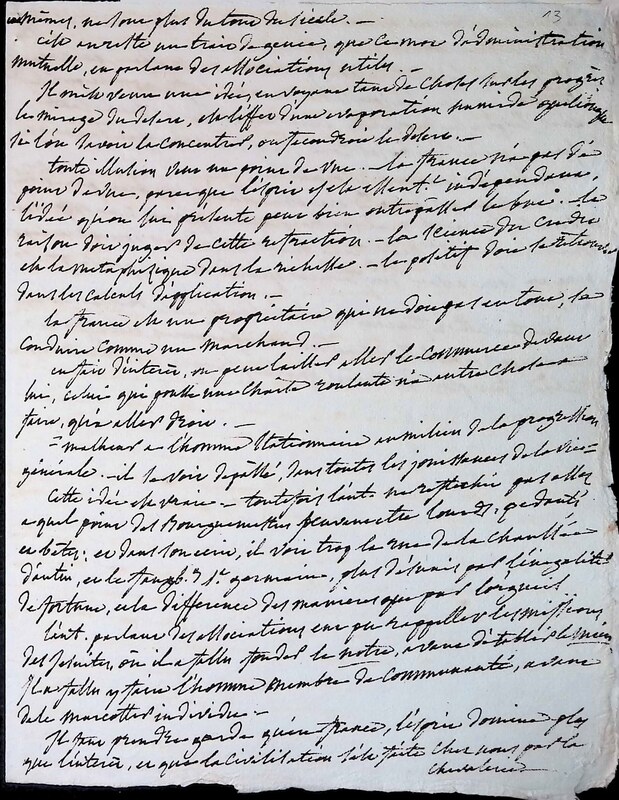 13
mêmes, ne sont plus du tout du siècle. —
C'est au reste un trait de genie, que ce mot d'administration
mutuelle, en parlant des associations utiles —
Il m'est venu une idée, en voyant tant de choses sur les progrès
le mirage du desert, est l'effet d'une evaporation
si l'on savoit la concentrer, on feconderoit le desert. —
toute illusion veut un point de vue. — la france n'a pas de
point de vue, parce que l'esprit y est essent.t independant,
l'idée qu'on lui presente peut bien outrepasser le but. — la
raison doit juger de cette refraction. — la science du credit
est la metaphysique dans la richesse. — le positif doit se
dans les calculs d'application. —
la france est une propriétaire qui ne doit pas en tout, se
conduire comme un marchand. —
en fait d'interêt, on peut laisser aller le commerce devant
lui, celui qui pousse une charette roulante n'a autre chose a
faire, qu'a aller droit. —
malheur a l'homme stationnaire au milieu de la progression
générale. — il se voit depassé, dans toutes les jouissances de la vie —
Cette idée est vraie — toutefois l'aut. ne reflechit pas assez
a quel point des Bourguemestres peuvent etre lourds, pedants
et betes; et dans son ecrit, il voit trop la rue de la chaussée
d'antin, et le faub.g St. germain, plus desunis par l'inegalité
de fortune, et la difference des manieres que par l'orgueil
l'aut. parlant des associations eut pu rappeller les missions
des Jesuites, où il a fallu fonder le notre, avant d'etablir le mien
Il a fallu y faire l'homme membre de communauté, avant
de le individu —
Il faut prendre garde qu'en france, l'esprit domine plus
que l'interêt, et que la civilisation s'est faite chez nous par la
chevalerie —